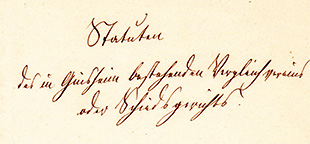 Statuten
des in Guisheim bestehenden Vergleichvereins
oder Schiedsgerichts.